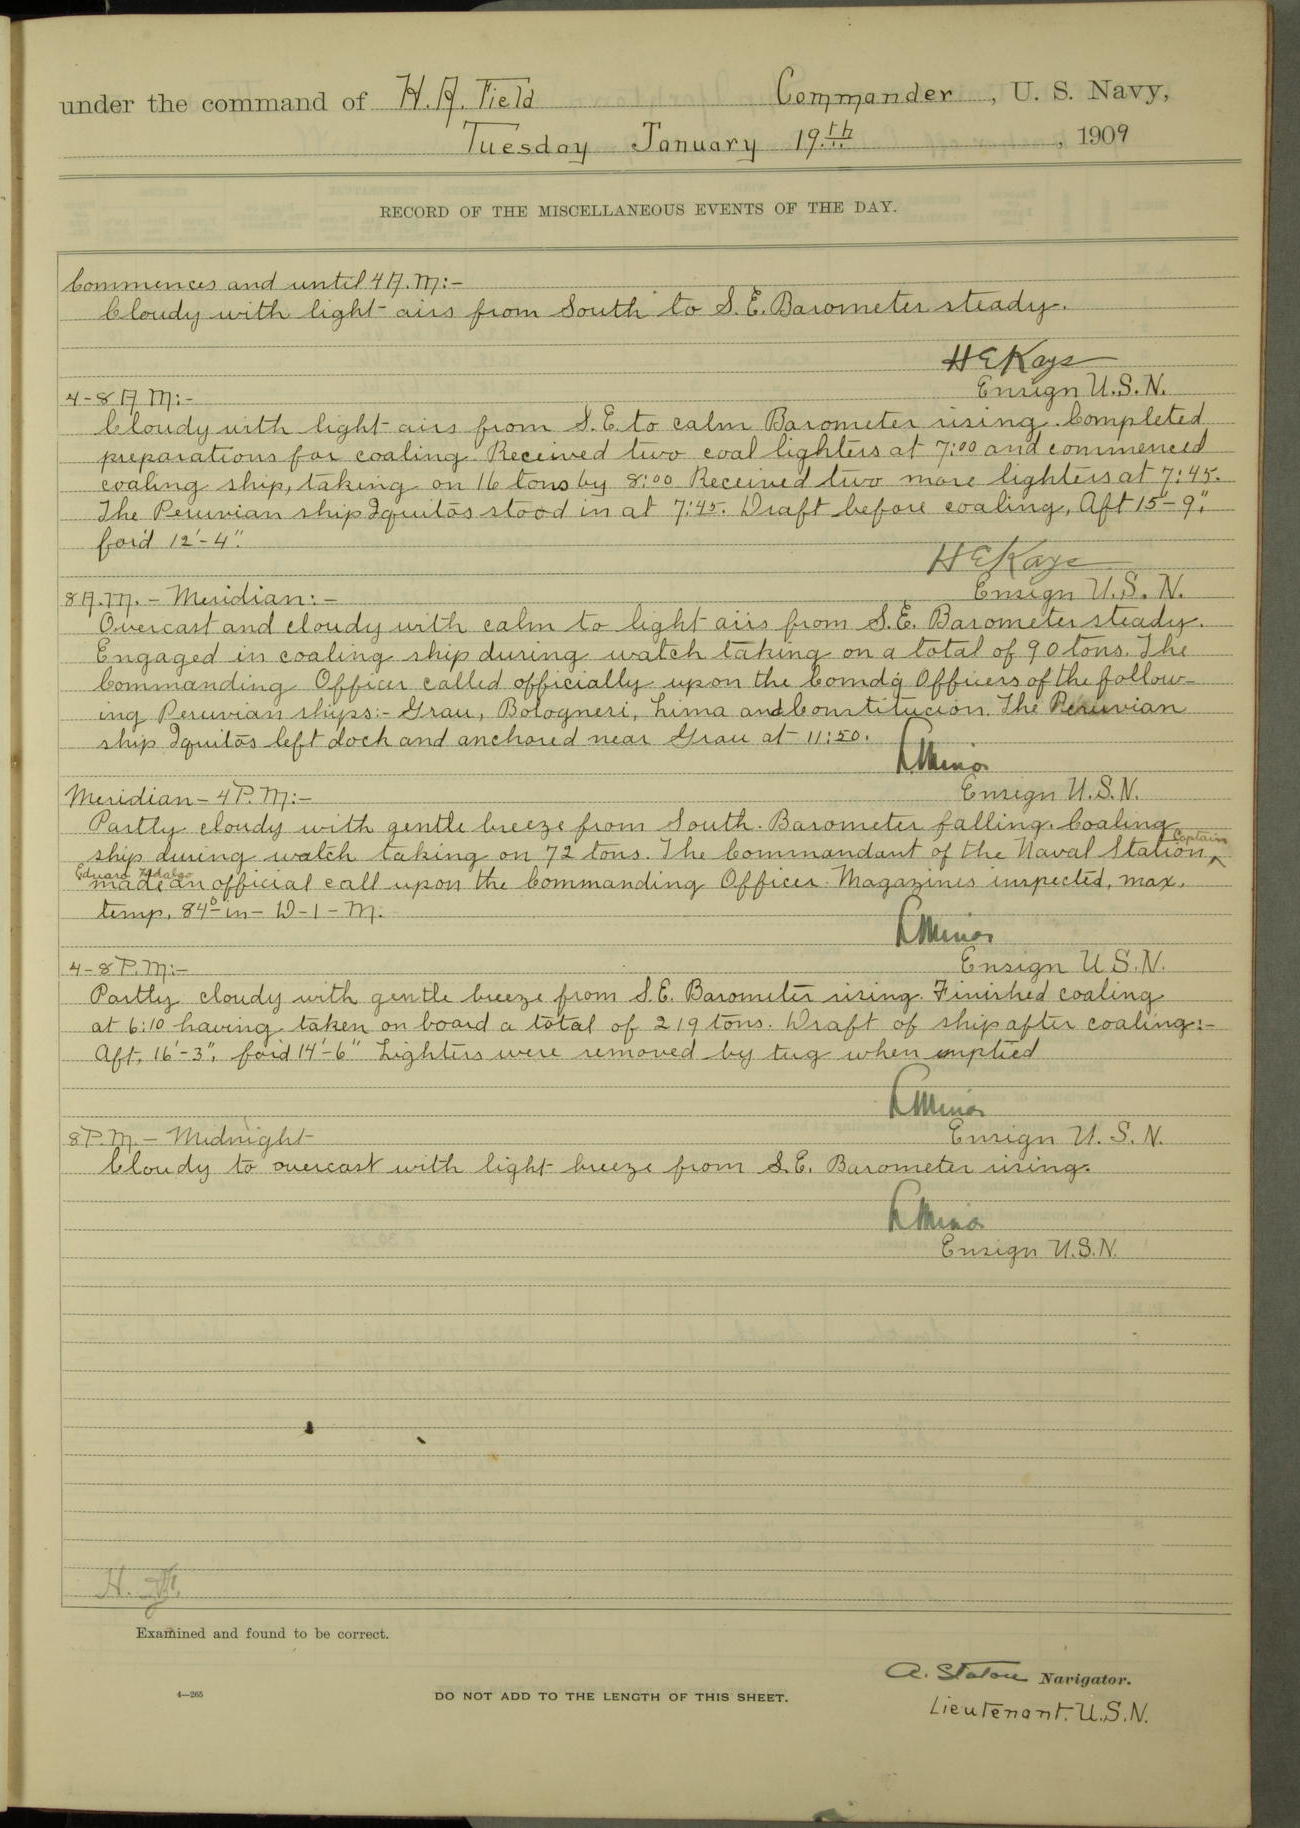 under the command of H. A. Field Commander, U. S. Navy,
Tuesday January 19.th, 1909
RECORD OF THE MISCELLANEOUS EVENTS OF THE DAY.
Commences and until 4 A.M:-
Cloudy with light airs from South to S.E. Barometer steady.
H E Kays
Ensign U.S.N.
4-8 A M:-
Cloudy with light airs from S.E. to calm Barometer rising. Completed
preparations for coaling. Received two coal lighters at 7:00 and commenced
coaling ship, taking on 16 tons by 8:00 Received two more lighters at 7:45.
The Peruvian ship Iquitos stood in at 7:45. Draft before coaling, Aft 15'-9",
for'd 12'-4".
H E Kays
Ensign U.S.N.
8 A.M. - Meridian:-
Overcast and cloudy with calm to light airs from S.E. Barometer steady.
Engaged in coaling ship during watch taking on a total of 90 tons. The
Commanding Officer called officially upon the Comdg Officers of the follow-
ing Peruvian ships:- Grau, Bolognesi, Lima and Constitucion. The Peruvian
ship Iquitos left dock and anchored near Grau at 11:50.
L Minor
Ensign U.S.N.
Meridian - 4 P.M:-
Partly cloudy with gentle breeze from South. Barometer falling. Coaling
ship during watch taking on 72 tons. The Commandant of the Naval Station, Captain
Eduard Hidalgo made an official call upon the Commanding Officer. Magazines inspected, max.
temp. 84° in - D-1-M.
L Minor
Ensign U.S.N.
4-8 P.M:-
Partly cloudy with gentle breeze from S.E. Barometer rising. Finished coaling
at 6:10 having taken on board a total of 219 tons. Draft of ship after coaling:-
Aft, 16'-3", for'd 14'-6" Lighters were removed by tug when emptied
L Minor
Ensign U.S.N.
8 P.M. - Midnight
Cloudy to overcast with light breeze from S.E. Barometer rising.
L Minor
Ensign U.S.N.
Examined and found to be correct.
A. Staton Navigator.
4—265
DO NOT ADD TO THE LENGTH OF THIS SHEET.
Lieutenant. U.S.N.